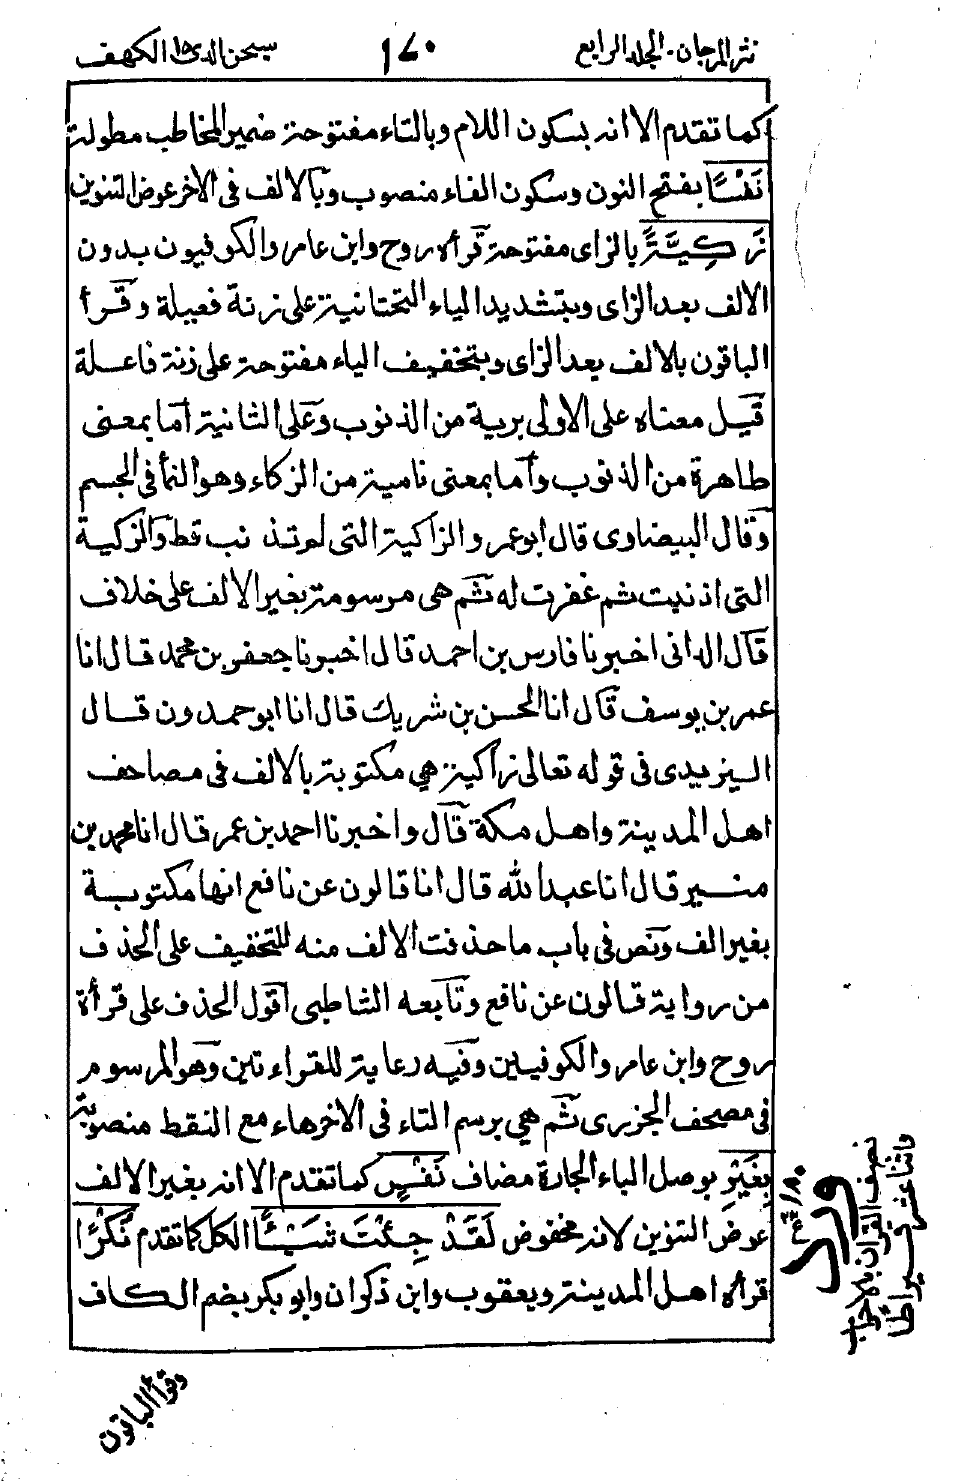 نثر المرجان - الجلد الرابع ١٨٠ سبحن الذى ١٥ الكهف
كما تقدم الا انه بسكون اللام وبالتاء مفتوحة ضمير المخاطب مطولة
نَفْسًا بفتح النون وسكون الفاء منصوب وبالالف فى الاخر عوض التنوين
زَكِيَّةً بالزاى مفتوحة قرأه روح وابن عامر والكوفيون بدون
الالف بعد الزاى وبتشديد الياء التحتانية على زنة فعيلة وقرأ
الباقون بالالف بعد الزاى وبتخفيف الياء مفتوحة على زنة فاعلة
قيل معناه على الاولى برية من الذنوب وعلى الثانية اما بمعنى
طاهرة من الذنوب وأما بمعنى نامية من الزكاء وهو النمأ فى الجسم
وقال البيضاوى قال ابو عمر و الزاكية التى لم تذنب قط والزكية
التى اذنبت ثم غفرت له ثم هى مرسومة بغير الالف على خلاف
قال الدانى اخبرنا فارس بن احمد قال اخبرنا جعفر بن محمد قال انا
عمر بن يوسف قال انا الحسن بن شريك قال انا ابو حمدون قال
اليزيدى فى قوله تعالى زاكية هى مكتوبة بالالف فى مصاحف
اهل المدينة واهل مكة قال واخبرنا احمد بن عمر قال انا محمد بن
منير قال انا عبد الله قال انا قالون عن نافع انها مكتوبة
بغير الف ونص فى باب ما حذفت الالف منه للتخفيف على الحذف
من رواية قالون عن نافع وتابعه الشاطبى اقول الحذف على قرأة
روح وابن عامر والكوفيين وفيه رعاية للقراءتين وهو المرسوم
فى مصحف الجزرى ثم هى برسم التاء فى الاخرهاء مع النقط منصوبة
بِغَيْرِ بوصل الباء الجارة مضاف نَفْسٍ كما تقدم الا انه بغير الالف
عوض التنوين لانه مخفوض لَقَدْ جِئْتَ شَيْئًا الكل كما تقدم نُكْرًا
قرأه اهل المدينة ويعقوب وابن ذكوان وابو بكر بضم الكاف
نصف القرآن بالاحزاب
وقرأ الباقون